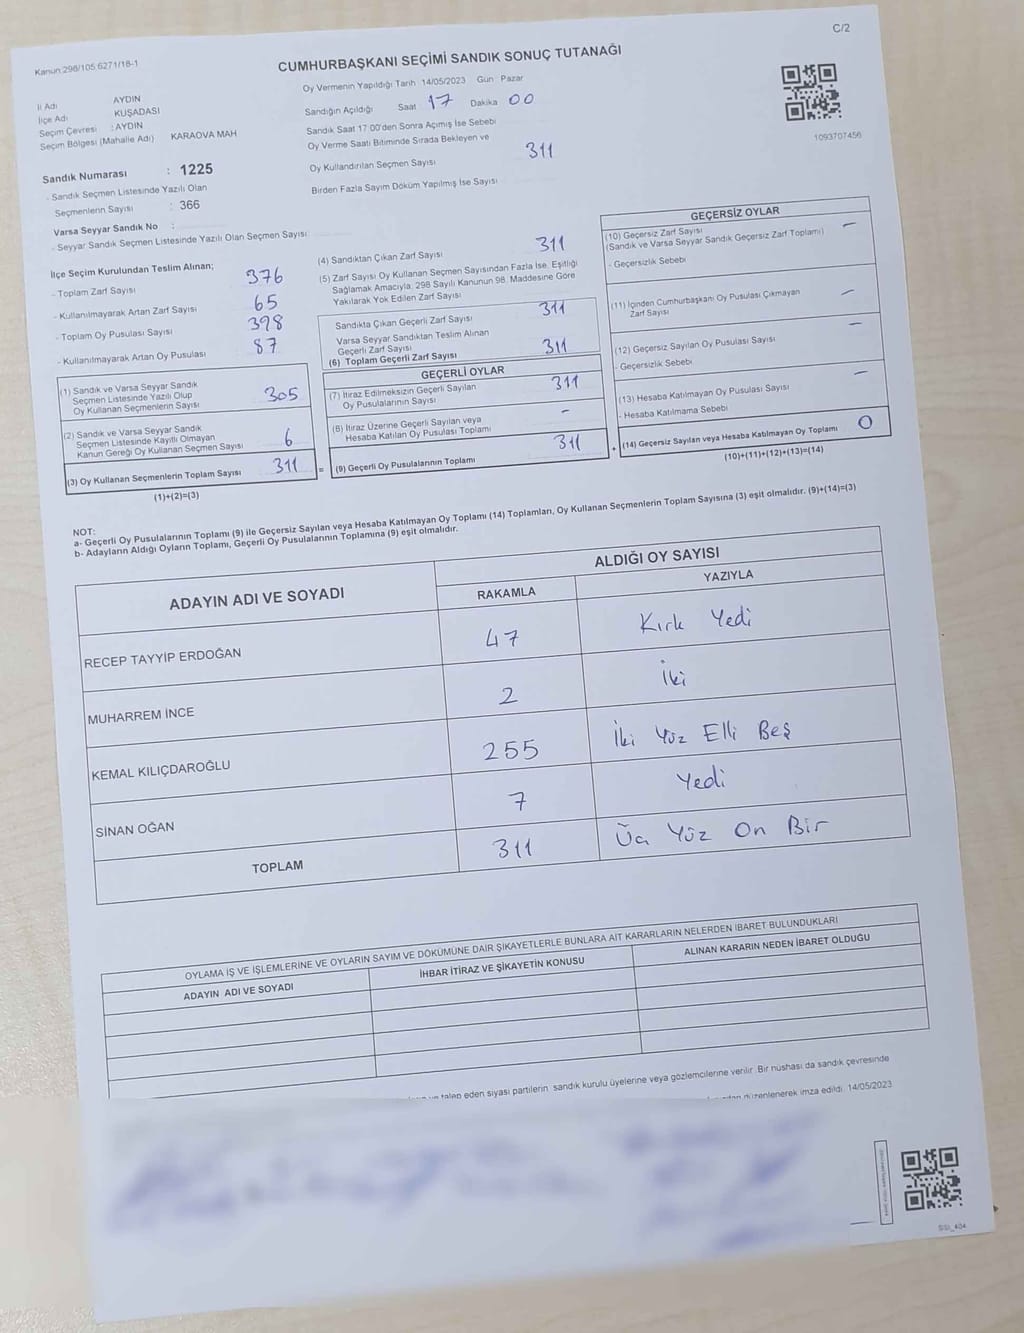 C/2
Kanun:298/105 6271/18-1
CUMHURBAŞKANI SEÇİMİ SANDIK SONUÇ TUTANAĞI
Oy Vermenin Yapıldığı Tarih 14/05/2023 Gün Pazar
İl Adı AYDIN
İlçe Adı KUŞADASI
Seçim Çevresi : AYDIN
Seçim Bölgesi (Mahalle Adı) KARAOVA MAH
Sandığın Açıldığı Saat 17 Dakika 00
Sandık Saat 17:00'den Sonra Açımış İse Sebebi
Oy Verme Saati Bitiminde Sırada Bekleyen ve
Oy Kullandırılan Seçmen Sayısı 311
Birden Fazla Sayım Döküm Yapılmış İse Sayısı
1093707456
Sandık Numarası : 1225
- Sandık Seçmen Listesinde Yazılı Olan
Seçmenlerin Sayısı : 366
Varsa Seyyar Sandık No :
- Seyyar Sandık Seçmen Listesinde Yazılı Olan Seçmen Sayısı
İlçe Seçim Kurulundan Teslim Alınan;
- Toplam Zarf Sayısı 376
- Kullanılmayarak Artan Zarf Sayısı 65
- Toplam Oy Pusulası Sayısı 398
- Kullanılmayarak Artan Oy Pusulası 87
(1) Sandık ve Varsa Seyyar Sandık
Seçmen Listesinde Yazılı Olup
Oy Kullanan Seçmenlerin Sayısı 305
(2) Sandık ve Varsa Seyyar Sandık
Seçmen Listesinde Kayıtlı Olmayan
Kanun Gereği Oy Kullanan Seçmen Sayısı 6
(3) Oy Kullanan Seçmenlerin Toplam Sayısı 311 =
(1)+(2)=(3)
(4) Sandıktan Çıkan Zarf Sayısı 311
(5) Zarf Sayısı Oy Kullanan Seçmen Sayısından Fazla İse, Eşitliği
Sağlamak Amacıyla, 298 Sayılı Kanunun 98. Maddesine Göre
Yakılarak Yok Edilen Zarf Sayısı
Sandıkta Çıkan Geçerli Zarf Sayısı 311
Varsa Seyyar Sandıktan Teslim Alınan
Geçerli Zarf Sayısı
(6) Toplam Geçerli Zarf Sayısı 311
GEÇERLİ OYLAR
(7) İtiraz Edilmeksizin Geçerli Sayılan
Oy Pusulalarının Sayısı 311
(8) İtiraz Üzerine Geçerli Sayılan veya
Hesaba Katılan Oy Pusulası Toplamı -
(9) Geçerli Oy Pusulalarının Toplamı 311 +
GEÇERSİZ OYLAR
(10) Geçersiz Zarf Sayısı -
(Sandık ve Varsa Seyyar Sandık Geçersiz Zarf Toplamı)
- Geçersizlik Sebebi
(11) İçinden Cumhurbaşkanı Oy Pusulası Çıkmayan
Zarf Sayısı -
(12) Geçersiz Sayılan Oy Pusulası Sayısı -
- Geçersizlik Sebebi
(13) Hesaba Katılmayan Oy Pusulası Sayısı -
- Hesaba Katılmama Sebebi
(14) Geçersiz Sayılan veya Hesaba Katılmayan Oy Toplamı 0
(10)+(11)+(12)+(13)=(14)
NOT:
a- Geçerli Oy Pusulalarının Toplamı (9) ile Geçersiz Sayılan veya Hesaba Katılmayan Oy Toplamı (14) Toplamları, Oy Kullanan Seçmenlerin Toplam Sayısına (3) eşit olmalıdır. (9)+(14)=(3)
b- Adayların Aldığı Oyların Toplamı, Geçerli Oy Pusulalarının Toplamına (9) eşit olmalıdır.
ADAYIN ADI VE SOYADI
ALDIĞI OY SAYISI
RAKAMLA YAZIYLA
RECEP TAYYİP ERDOĞAN 47 Kırk Yedi
MUHARREM İNCE 2 İki
KEMAL KILIÇDAROĞLU 255 İki Yüz Elli Beş
SİNAN OĞAN 7 Yedi
TOPLAM 311 Üç Yüz On Bir
OYLAMA İŞ VE İŞLEMLERİNE VE OYLARIN SAYIM VE DÖKÜMÜNE DAİR ŞİKAYETLERLE BUNLARA AİT KARARLARIN NELERDEN İBARET BULUNDUKLARI
ADAYIN ADI VE SOYADI İHBAR İTİRAZ VE ŞİKAYETİN KONUSU ALINAN KARARIN NEDEN İBARET OLDUĞU
talep eden siyasi partilerin sandık kurulu üyelerine veya gözlemcilerine verilir. Bir nüshası da sandık çevresinde
düzenlenerek imza edildi. 14/05/2023